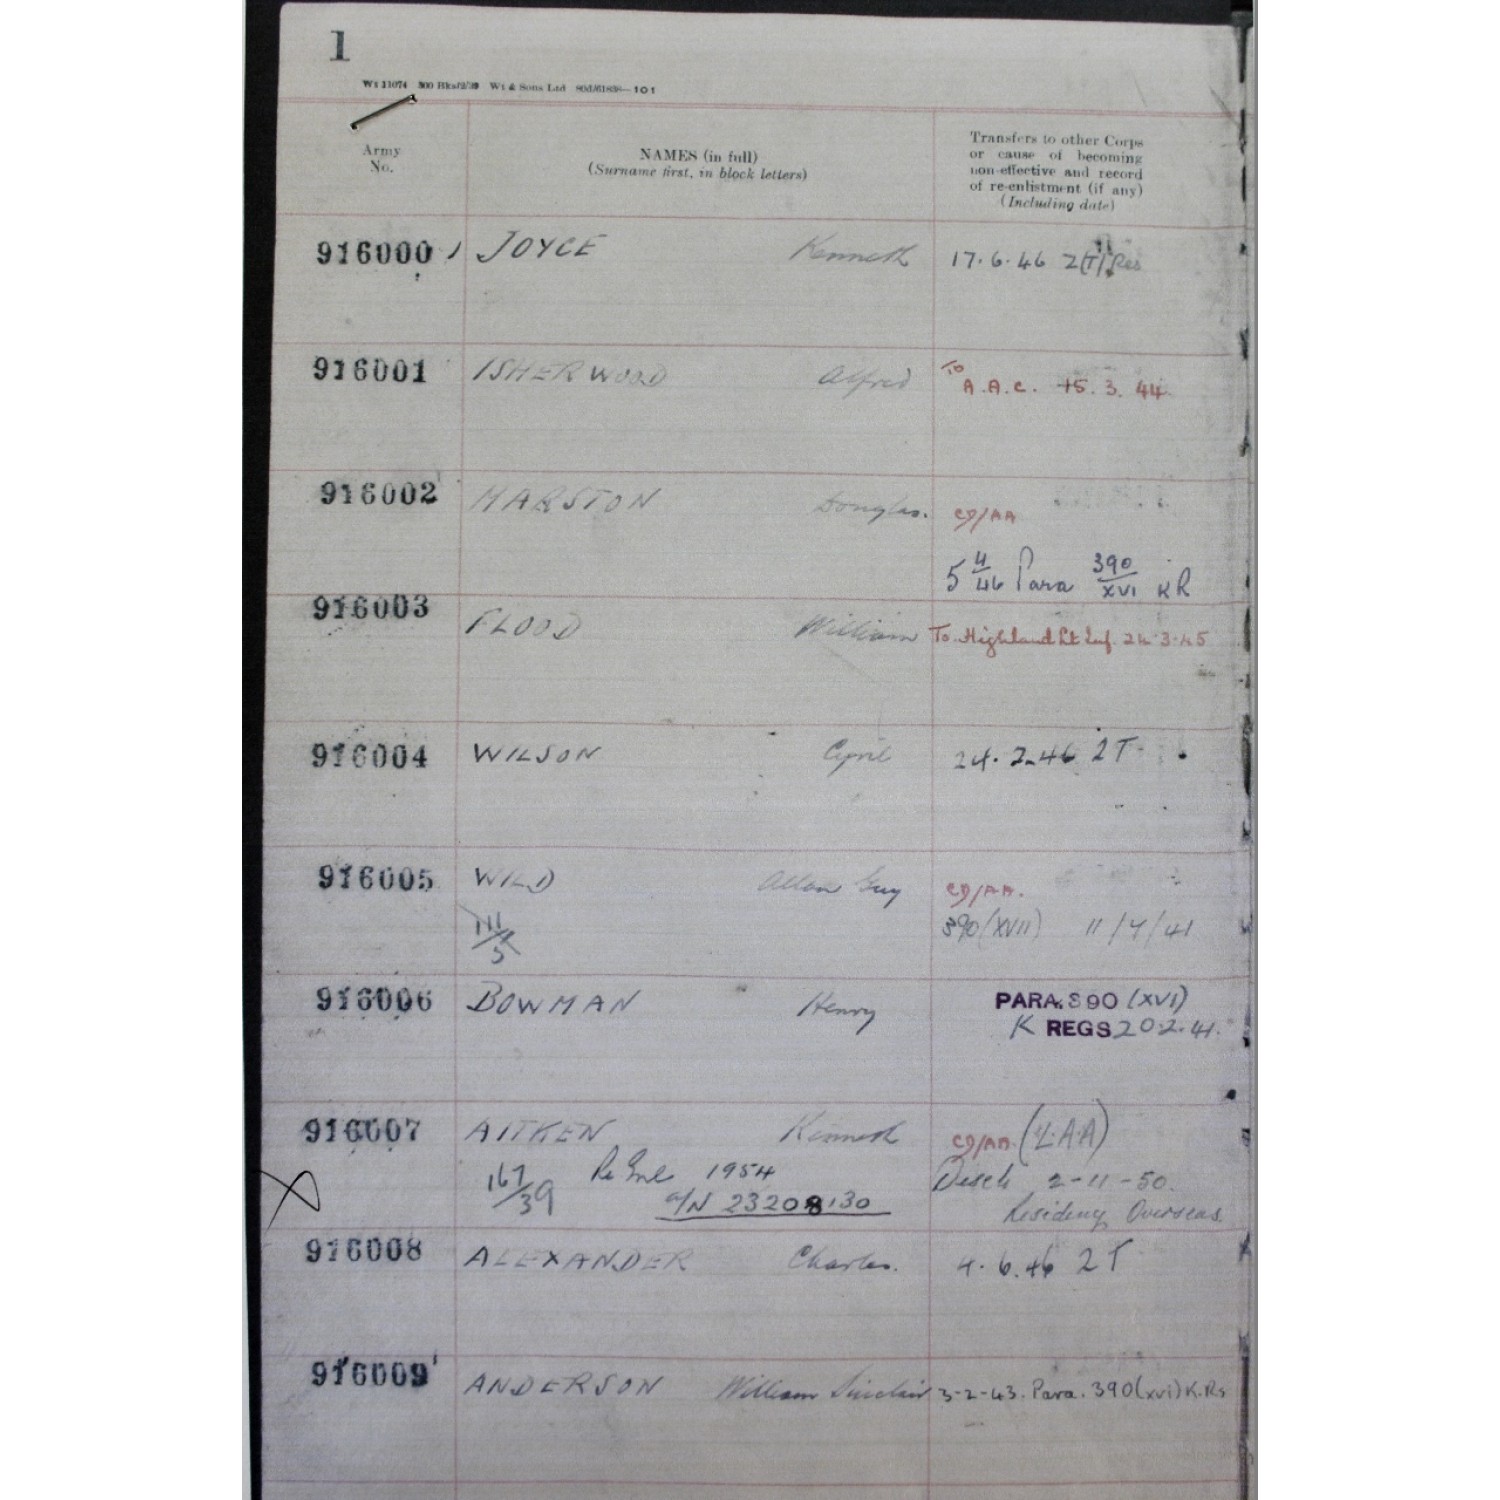 1
Wt 11074 300 Bks/2/39 Wt & Sons Ltd
Army
No.
NAMES (in full)
(Surname first, in block letters)
Transfers to other Corps
or cause of becoming
non-effective and record
of re-enlistment (if any)
(Including date)
916000 JOYCE Kenneth 17.6.46 2(T) Res
916001 ISHERWOOD Alfred To
A.A.C. 15.3.44
916002 MARSTON Douglas. CD/AA
5 4/46 Para 390/XVI KR
916003 FLOOD William To Highland Lt Inf. 24.3.45
916004 WILSON Cyril 24.2.46 2T
916005 WILD Allan Guy CD/AA.
390(XVII) 11/7/41
916006 BOWMAN Henry PARA. 390 (XVI)
K REGS 20.2.41.
916007 AITKEN Kenneth CD/AA. (L.A.A)
167/39 Re Enl 1954 Disch 2-11-50.
a/N 23208130 Residing Overseas.
916008 ALEXANDER Charles. 4.6.46 2T
916009 ANDERSON William Sinclair 3-2-43. Para. 390(xvi) K.Rs